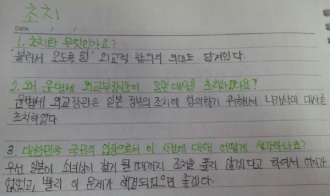 초치
Date
1. 초치란 무엇인가요?
불러서 오도록 함. 외교적 항의의 의미도 담겨있다.
2. 왜 윤병세 외교부장관이 일본대사를 초치하였나요?
윤병세 외교장관은 일본 정부의 조치에 항의하기 위해서 나가미네 대사를
초치하였다.
3. 대한민국 국민의 입장으로서 이 사건에 대해 어떻게 생각하나요?
우선 일본이 소녀상이 철거 될 때까지 조치를 풀지 않겠다고 하여서 어이가
없었고, 빨리 이 문제가 해결되었으면 좋겠다.